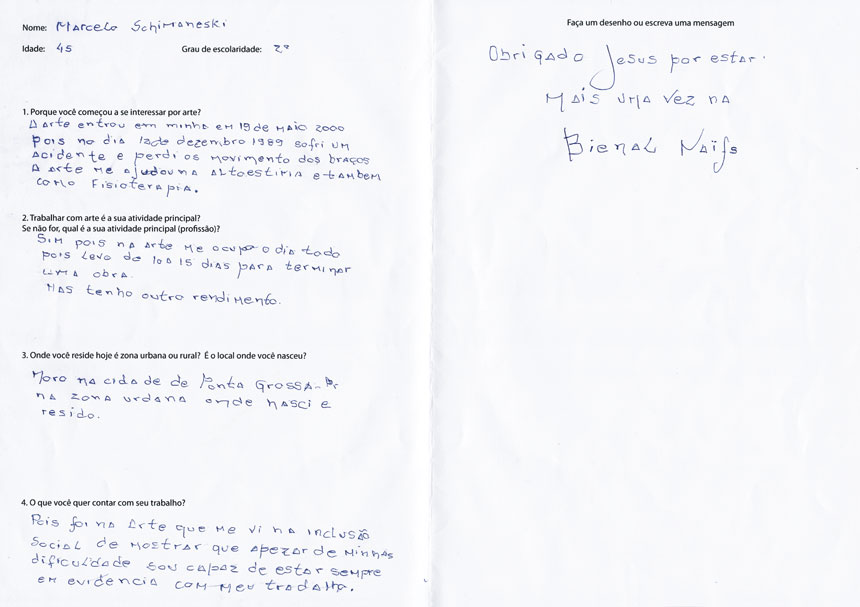 Nome: Marcelo Schimaneski
Idade: 45 Grau de escolaridade: 2º
1. Porque você começou a se interessar por arte?
A arte entrou em minha em 19 de maio 2000
pois no dia 12 de dezembro 1989 sofri um
acidente e perdi os movimento dos braços
A arte me ajudou na altoestima e também
como Fisioterapia.
2. Trabalhar com arte é a sua atividade principal?
Se não for, qual é a sua atividade principal (profissão)?
Sim pois na arte me ocupo o dia todo
pois levo de 10 a 15 dias para terminar
uma obra.
Mas tenho outro rendimento.
3. Onde você reside hoje é zona urbana ou rural? É o local onde você nasceu?
Moro na cidade de Ponta Grossa-Pr
na zona urbana onde nasci e
resido.
4. O que você quer contar com seu trabalho?
Pois foi na Arte que me vi na inclusão
social de mostrar que apezar de minhas
dificuldade sou capaz de estar sempre
em evidência com meu trabalho.
Faça um desenho ou escreva uma mensagem
Obrigado Jesus por estar.
Mais uma vez na
Bienal Naïfs